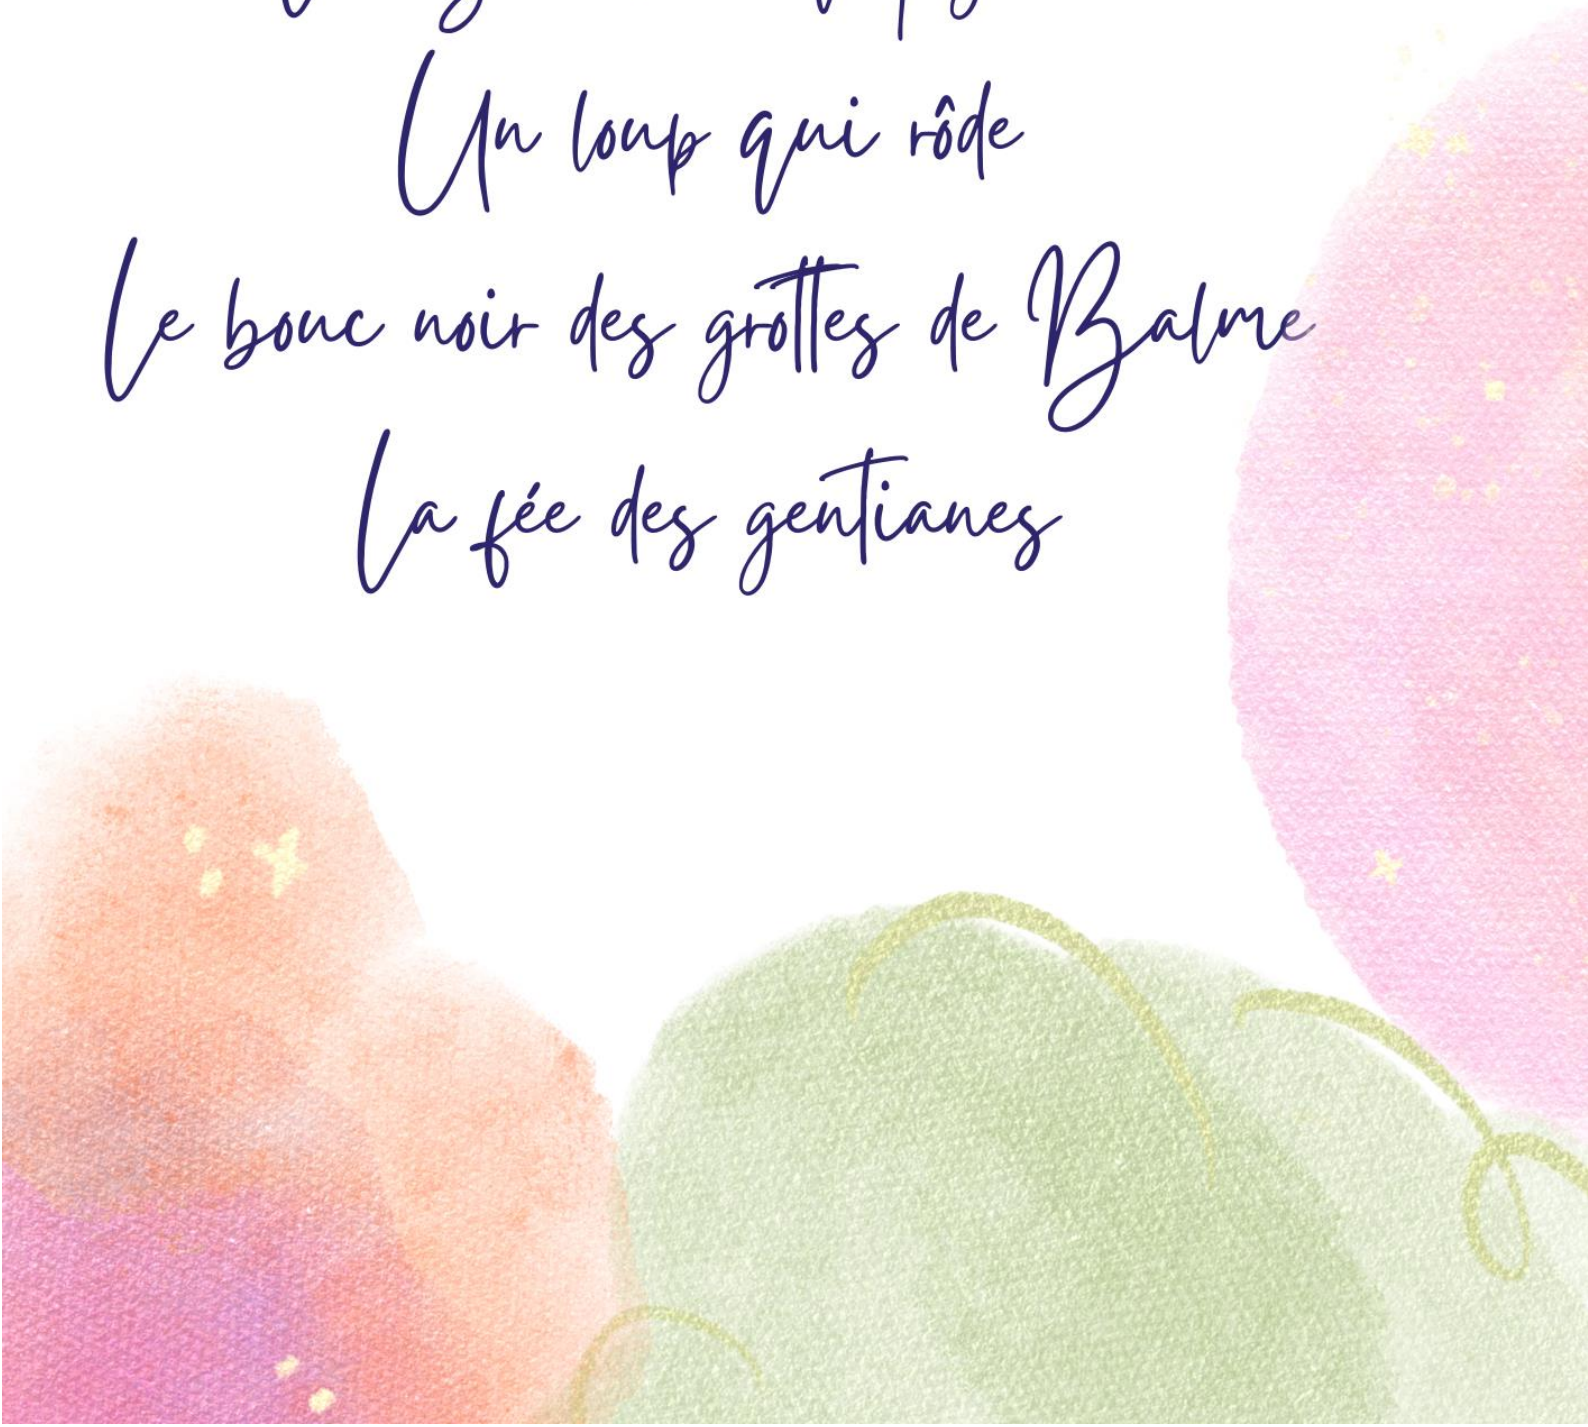 Un loup qui rôde
Le bouc noir des grottes de Balme
La fée des gentianes